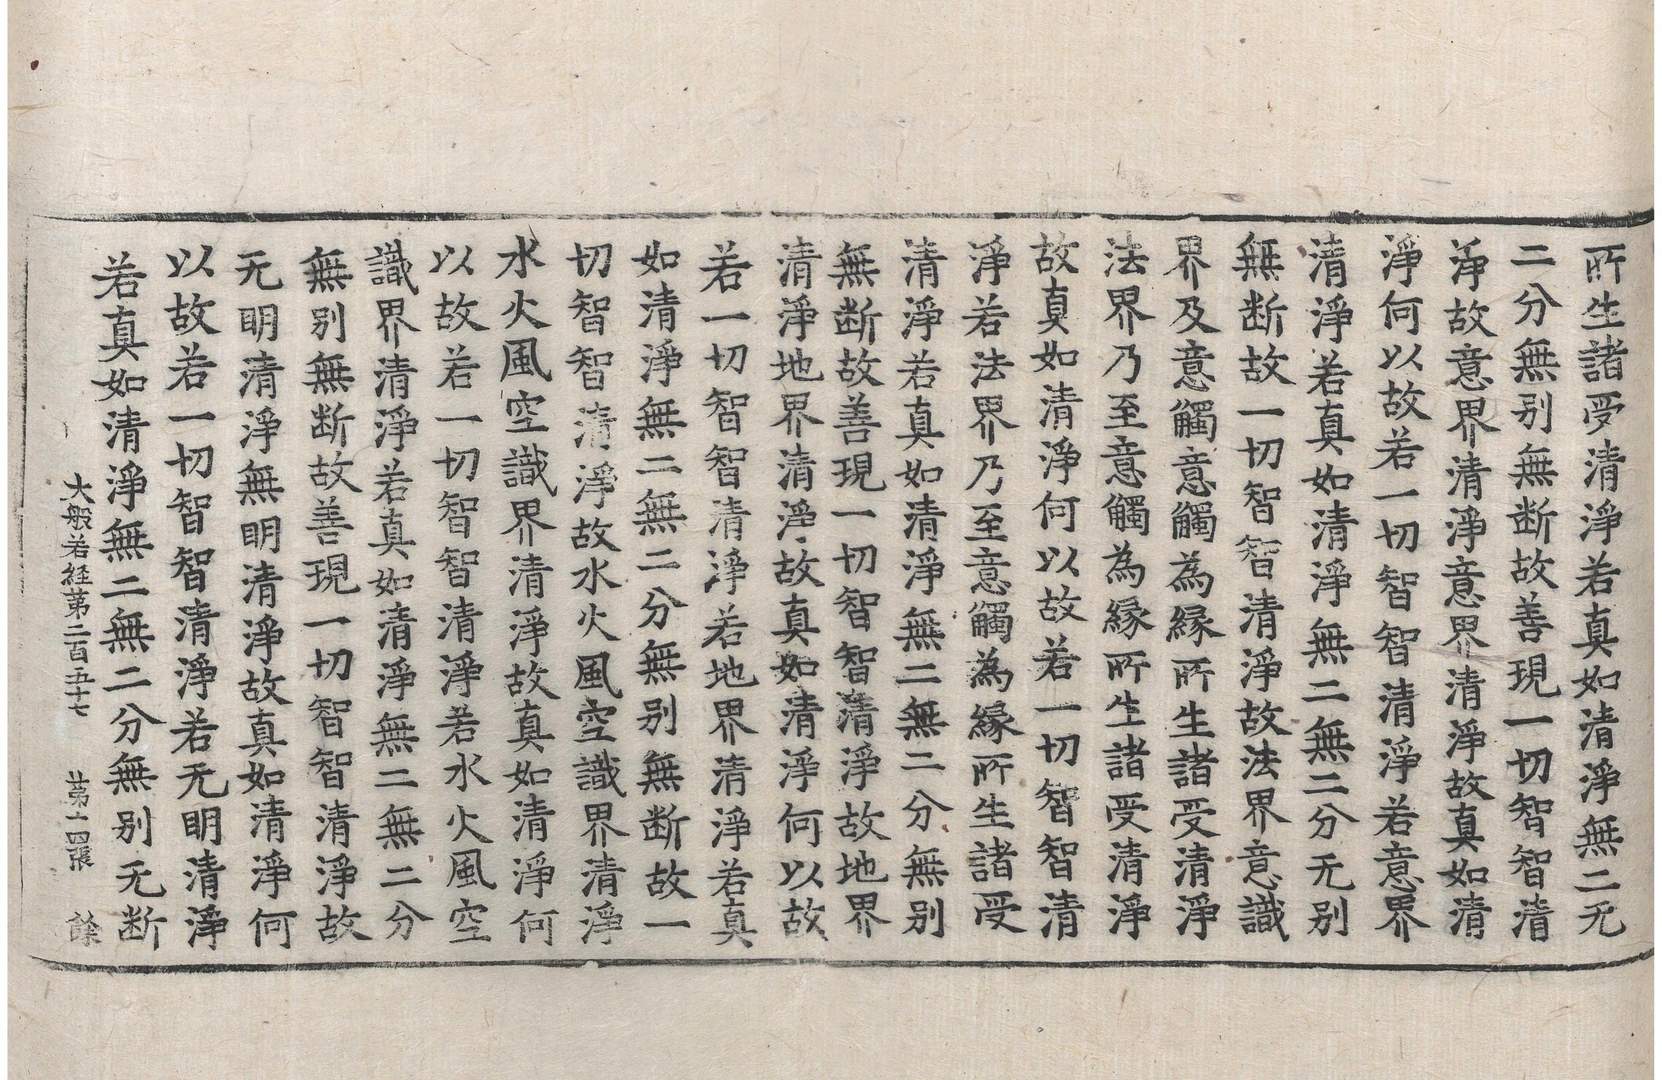 所生諸受清淨若真如清淨無二无
二分無别無断故善現一切智智清
淨故意界清淨意界清淨故真如清
淨何以故若一切智智清淨若意界
清淨若真如清淨無二無二分无别
無断故一切智智清淨故法界意識
界及意觸意觸為縁所生諸受清淨
法界乃至意觸為縁所生諸受清淨
故真如清淨何以故若一切智智清
淨若法界乃至意觸為縁所生諸受
清淨若真如清淨無二無二分無别
無断故善現一切智智清淨故地界
清淨地界清淨故真如清淨何以故
若一切智智清淨若地界清淨若真
如清淨無二無二分無别無断故一
切智智清淨故水火風空識界清淨
水火風空識界清淨故真如清淨何
以故若一切智智清淨若水火風空
識界清淨若真如清淨無二無二分
無别無断故善現一切智智清淨故
无明清淨無明清淨故真如清淨何
以故若一切智智清淨若无明清淨
若真如清淨無二無二分無别无断
大般若経苐二百五十七 苐十四張 餘